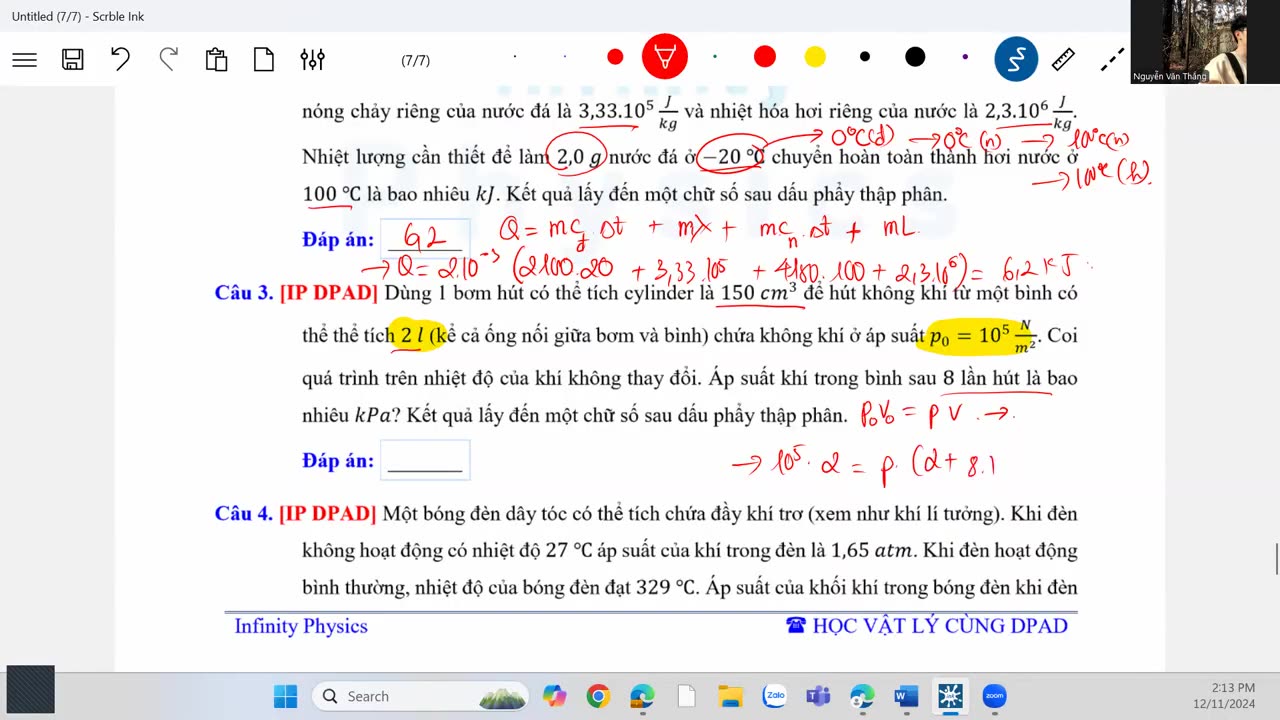 Untitled (7/7) - Scrble Ink
(7/7)
Nguyễn Văn Thắng
nóng chảy riêng của nước đá là 3,33.10⁵ J/kg và nhiệt hóa hơi riêng của nước là 2,3.10⁶ J/kg.
0°C(đ) → 0°C (n) → 100°C(n)
Nhiệt lượng cần thiết để làm 2,0 g nước đá ở −20 °C chuyển hoàn toàn thành hơi nước ở
→ 100°C (h).
100 °C là bao nhiêu kJ. Kết quả lấy đến một chữ số sau dấu phẩy thập phân.
Đáp án: 6,2 Q = mcđ.Δt + mλ + mcn.Δt + mL
→ Q = 2.10⁻³ (2100.20 + 3,33.10⁵ + 4180.100 + 2,3.10⁶) = 6,2 kJ.
Câu 3. [IP DPAD] Dùng 1 bơm hút có thể tích cylinder là 150 cm³ để hút không khí từ một bình có
thể thể tích 2 l (kể cả ống nối giữa bơm và bình) chứa không khí ở áp suất p₀ = 10⁵ N/m². Coi
quá trình trên nhiệt độ của khí không thay đổi. Áp suất khí trong bình sau 8 lần hút là bao
nhiêu kPa? Kết quả lấy đến một chữ số sau dấu phẩy thập phân. p₀V₀ = pV →
Đáp án: → 10⁵.2 = p.(2 + 8.1
Câu 4. [IP DPAD] Một bóng đèn dây tóc có thể tích chứa đầy khí trơ (xem như khí lí tưởng). Khi đèn
không hoạt động có nhiệt độ 27 °C áp suất của khí trong đèn là 1,65 atm. Khi đèn hoạt động
bình thường, nhiệt độ của bóng đèn đạt 329 °C. Áp suất của khối khí trong bóng đèn khi đèn
Infinity Physics
☎ HỌC VẬT LÝ CÙNG DPAD
Search
Zalo
zoom
2:13 PM
12/11/2024